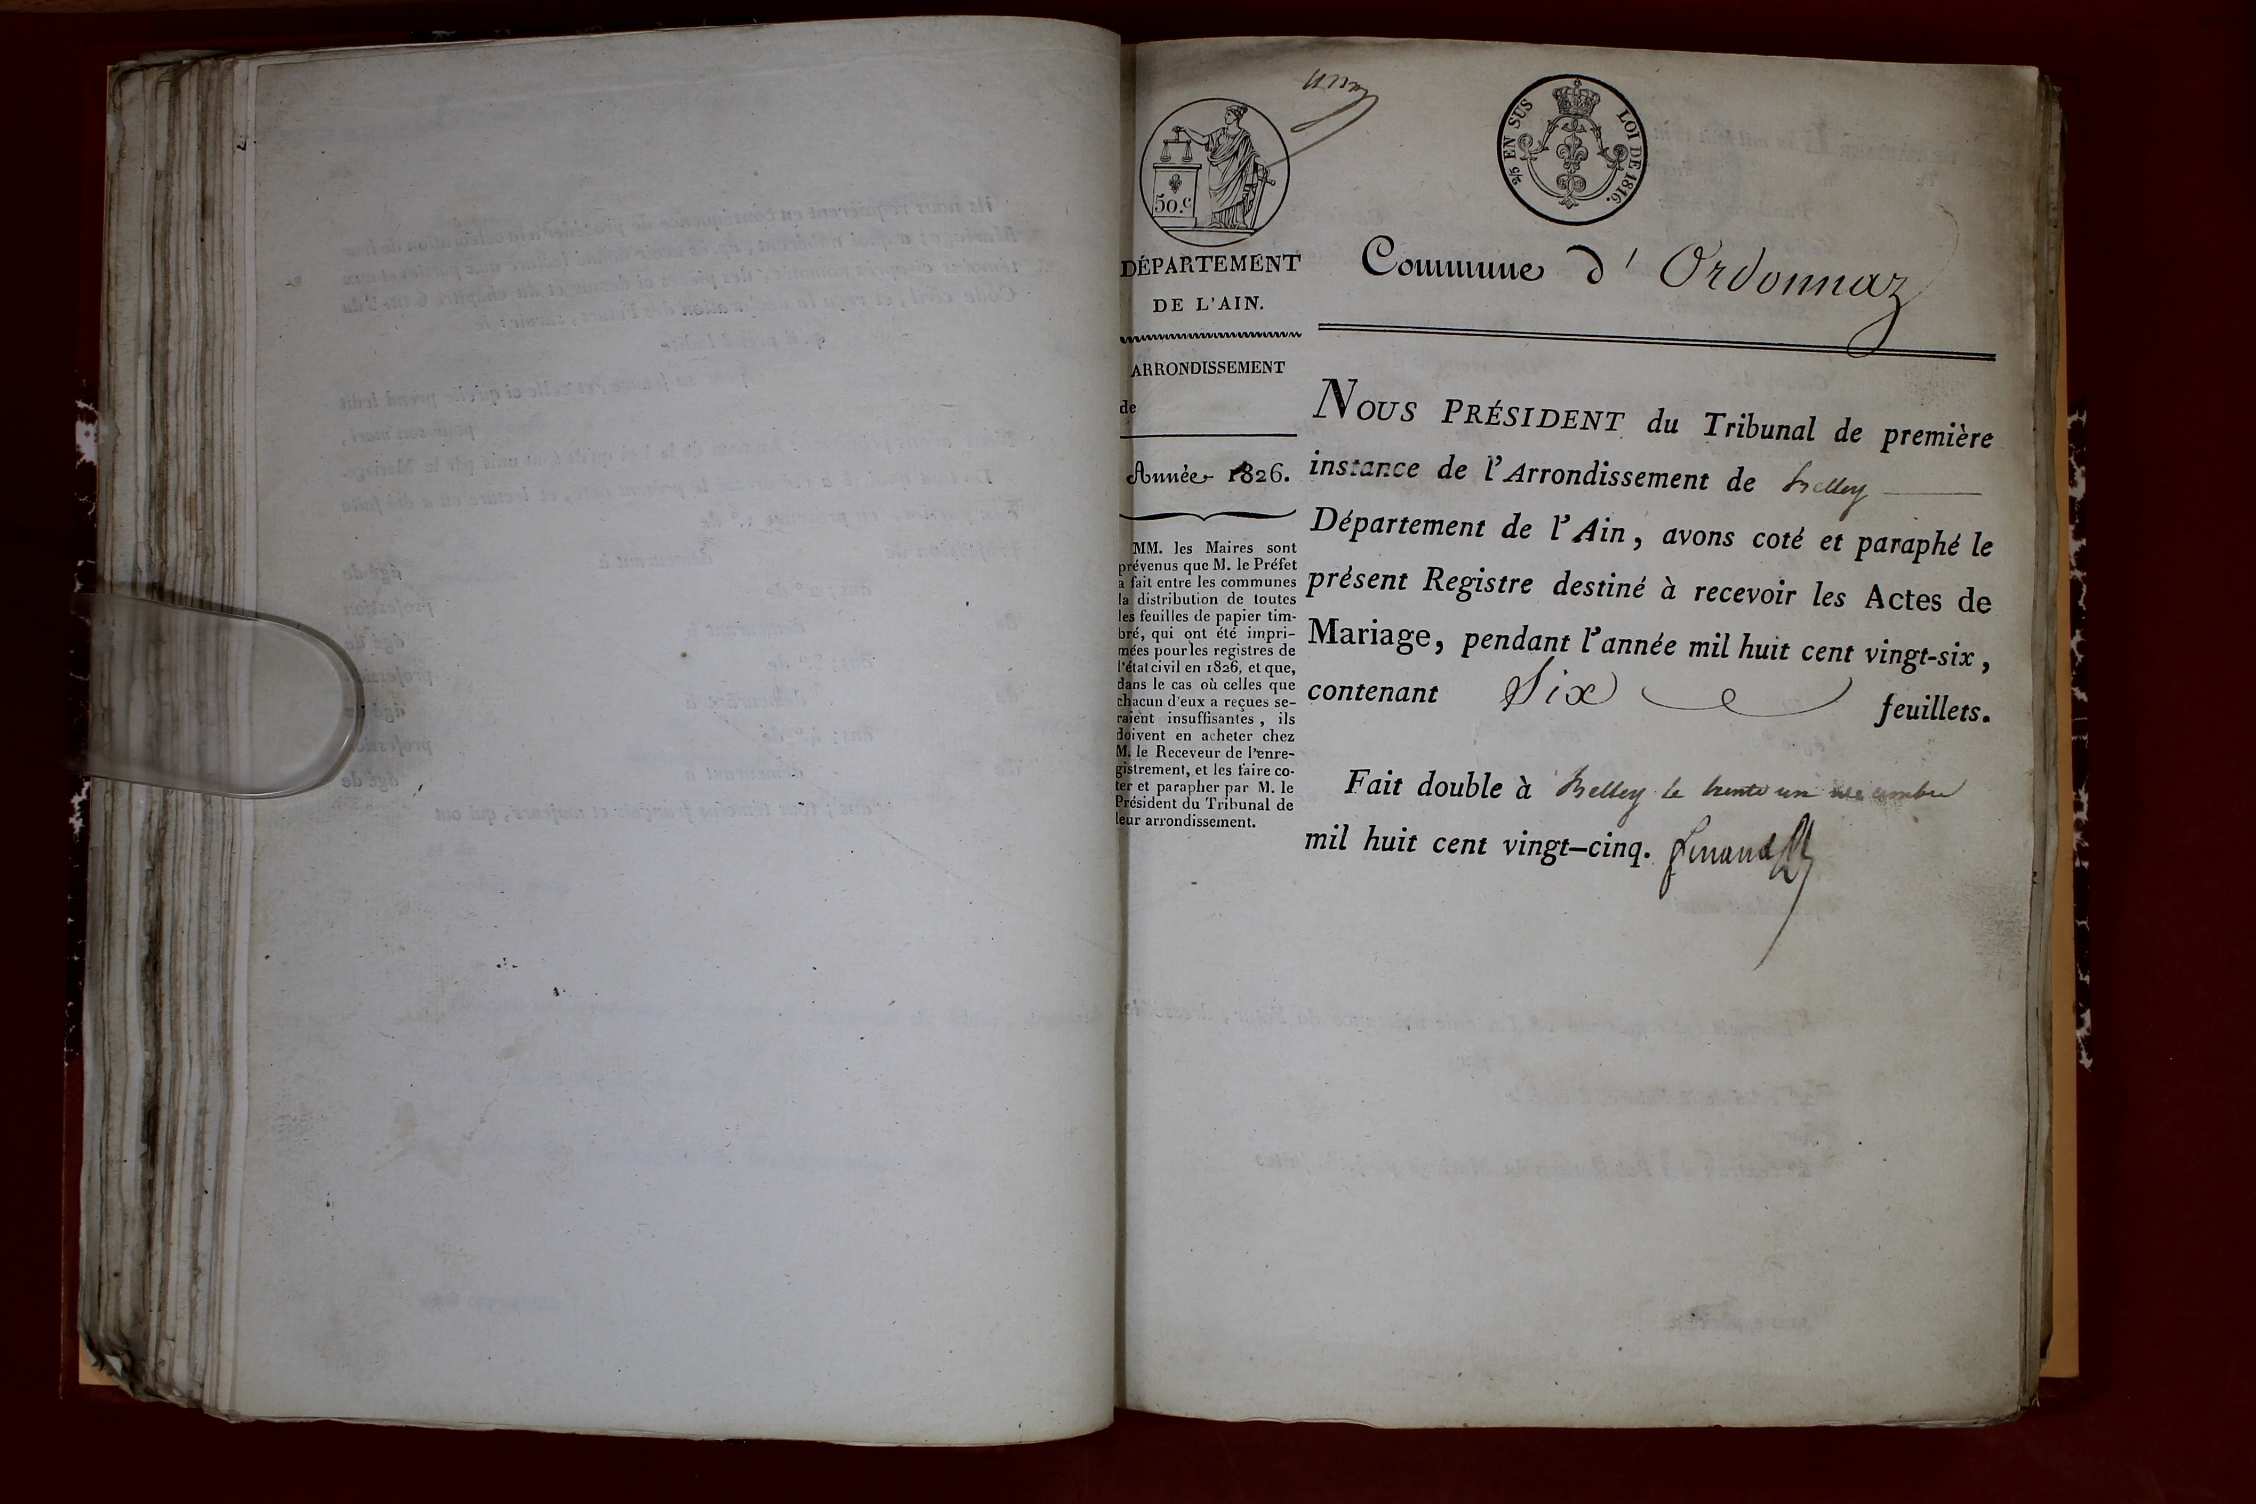 50.c
2/5 EN SUS LOI DE 1816.
DÉPARTEMENT
DE L'AIN.
ARRONDISSEMENT
de
Année 1826.
MM. les Maires sont
prévenus que M. le Préfet
a fait entre les communes
la distribution de toutes
les feuilles de papier tim-
bré, qui ont été impri-
mées pour les registres de
l'état civil en 1826, et que,
dans le cas où celles que
chacun d'eux a reçues se-
raient insuffisantes, ils
doivent en acheter chez
M. le Receveur de l'enre-
gistrement, et les faire co-
ter et parapher par M. le
Président du Tribunal de
leur arrondissement.
Commune d'Ordonnaz
NOUS PRÉSIDENT du Tribunal de première
instance de l'Arrondissement de Belley
Département de l'Ain, avons coté et paraphé le
présent Registre destiné à recevoir les Actes de
Mariage, pendant l'année mil huit cent vingt-six,
contenant Six feuillets.
Fait double à Belley le trente un décembre
mil huit cent vingt-cinq.